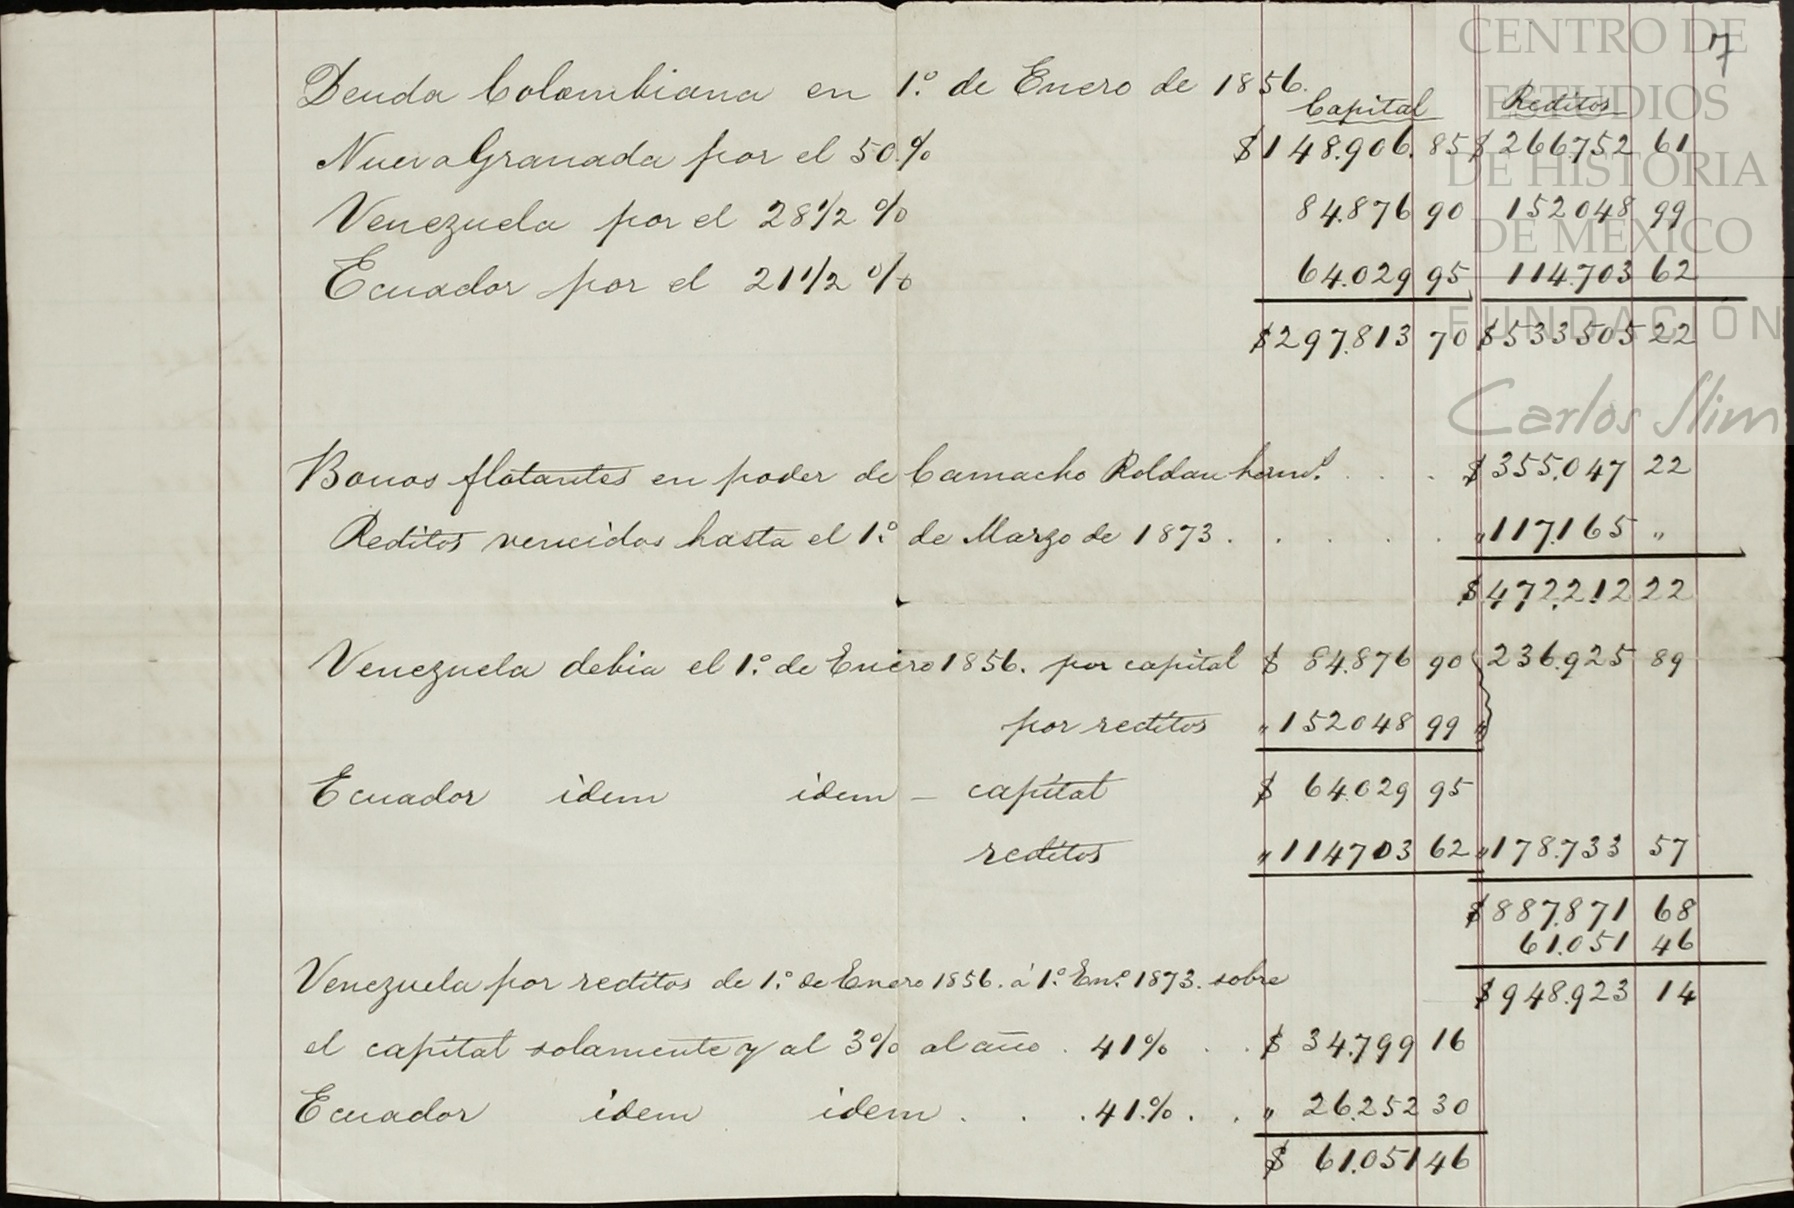 7
Deuda Colombiana en 1º de Enero de 1856.
Capital Reditos
Nueva Granada por el 50 % $148.906.85 $266752 61
Venezuela por el 28 1/2 % 84.876 90 152048 99
Ecuador por el 21 1/2 % 64.029 95 114.703 62
$297.813 70 $533505 22
Bonos flotantes en poder de Camacho Roldan herm.s . . . $355.047 22
Reditos vencidos hasta el 1º de Marzo de 1873 . . . . . " 117.165 "
$472.212 22
Venezuela debia el 1º de Enero 1856. por capital $ 84.876 90 236.925 89
por reditos " 152048 99 "
Ecuador idem idem - capital $ 64.029 95
reditos " 114703 62 " 178.733 57
$887.871 68
61.051 46
Venezuela por reditos de 1º de Enero 1856. á 1º En.º 1873. sobre
$948.923 14
el capital solamente y al 3% al año . 41% . . $ 34.799 16
Ecuador idem idem . . . 41.% . . " 26.252 30
$ 61.051 46
CENTRO DE
ESTUDIOS
DE HISTORIA
DE MÉXICO
FUNDACIÓN
Carlos Slim